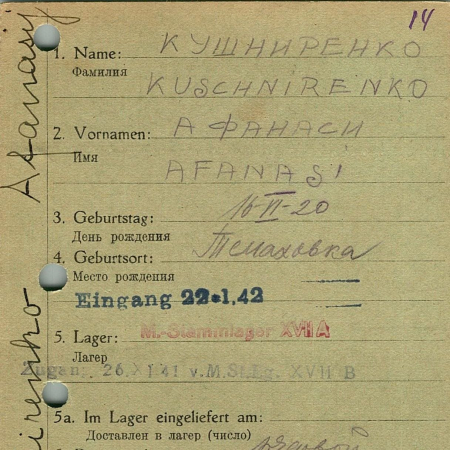 14
1. Name: КУШНИРЕНКО
Фамилия
KUSCHNIRENKO
2. Vornamen: АФАНАСИ
Имя
AFANASI
3. Geburtstag: 16-VI-20
День рождения
4. Geburtsort: Тсмаховка
Место рождения
Eingang 22.1.42
5. Lager: M.-Stammlager XVII A
Лагерь
Zugang 26.XI.41 v.M.St.Lg. XVII B
5a. Im Lager eingeliefert am:
Доставлен в лагерь (число)
Afanasij